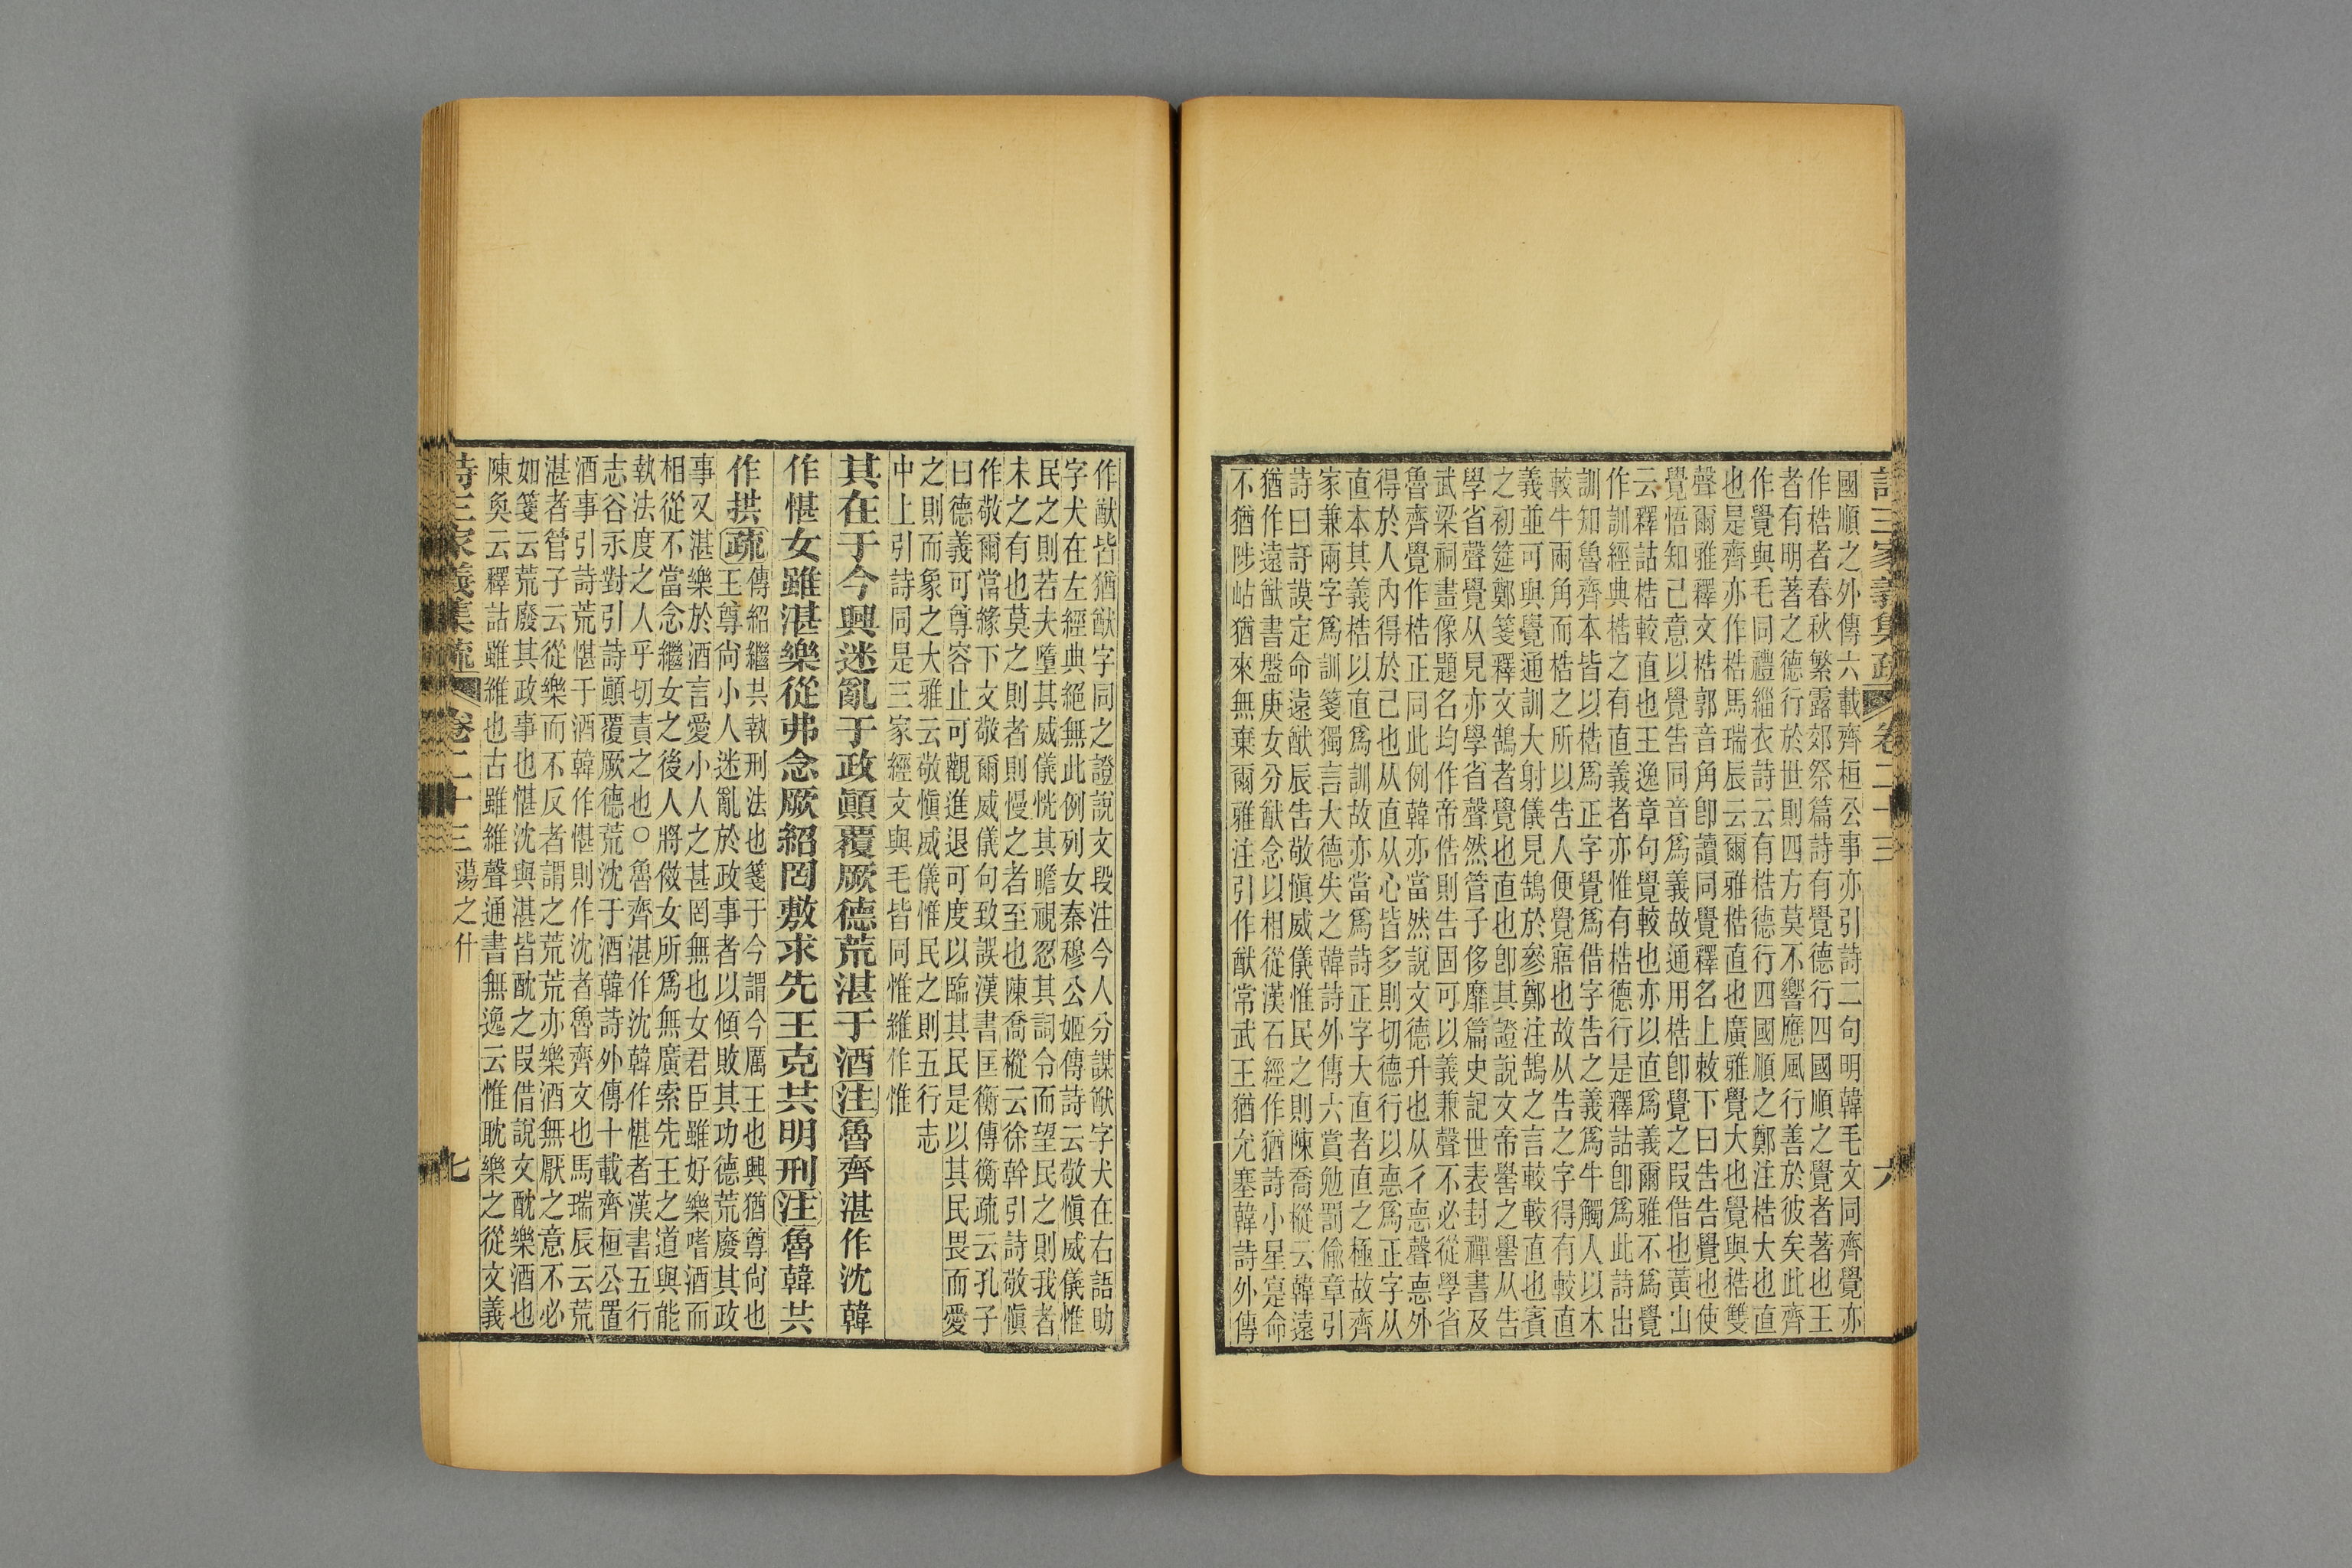 詩三家義集疏 卷二十三 六
國順之外傳六載齊桓公事亦引詩二句明韓毛文同齊覺亦
作梏者春秋繁露郊祭篇詩有覺德行四國順之覺者著也王
者有明著之德行於世則四方莫不響應風行善於彼矣此齊
作覺與毛同禮緇衣詩云有梏德行四國順之鄭注梏大也直
也是齊亦作梏馬瑞辰云爾雅梏直也廣雅覺大也覺與梏雙
聲爾雅釋文梏郭音角卽讀同覺釋名上敕下曰告告覺也使
覺悟知己意以覺告同音爲義故通用梏卽覺之叚借也黃山
云釋詁梏較直也王逸章句覺較也亦以直爲義爾雅不爲覺
作訓經典梏之有直義者亦惟有梏德行是釋詁卽爲此詩出
訓知魯齊本皆以梏爲正字覺爲借字告之義爲牛觸人以木
較牛兩角而梏之所以告人便覺寤也故从告之字得有較直
義並可與覺通訓大射儀見鵠於參鄭注鵠之言較較直也賓
之初筵鄭箋釋文鵠者覺也直也卽其證說文帝嚳之嚳从告
學省聲覺从見亦學省聲然管子侈靡篇史記世表封禪書及
武梁祠畫像題名均作帝俈則告固可以義兼聲不必從學省
魯齊覺作梏正同此例韓亦當然說文德升也从彳悳聲悳外
得於人內得於己也从直从心皆多則切德行以悳爲正字从
直本其義梏以直爲訓故亦當爲詩正字大直者直之極故齊
家兼兩字爲訓箋獨言大德失之韓詩外傳六賞勉罰偷章引
詩曰訏謨定命遠猷辰告敬愼威儀惟民之則陳喬樅云韓遠
猶作遠猷書盤庚女分猷念以相從漢石經作猶詩小星寔命
不猶陟岵猶來無棄爾雅注引作猷常武王猶允塞韓詩外傳
作猷皆猶猷字同之證說文段注今人分謀猷字犬在右語助
字犬在左經典絕無此例列女秦穆公姬傳詩云敬愼威儀惟
民之則若夫墮其威儀恍其瞻視忽其詞令而望民之則我者
未之有也莫之則者則慢之者至也陳喬樅云徐幹引詩敬愼
作敬爾當緣下文敬爾威儀句致誤漢書匡衡傳衡疏云孔子
曰德義可尊容止可觀進退可度以臨其民是以其民畏而愛
之則而象之大雅云敬愼威儀惟民之則五行志
中上引詩同是三家經文與毛皆同惟維作惟
其在于今興迷亂于政顚覆厥德荒湛于酒注魯齊湛作沈韓
作愖女雖湛樂從弗念厥紹罔敷求先王克共明刑注魯韓共
作拱疏傳紹繼共執刑法也箋于今謂今厲王也興猶尊尙也
王尊尙小人迷亂於政事者以傾敗其功德荒廢其政
事又湛樂於酒言愛小人之甚罔無也女君臣雖好樂嗜酒而
相從不當念繼女之後人將傚女所爲無廣索先王之道與能
執法度之人乎切責之也○魯齊湛作沈韓作愖者漢書五行
志谷永對引詩顚覆厥德荒沈于酒韓詩外傳十載齊桓公置
酒事引詩荒愖于酒韓作愖則作沈者魯齊文也馬瑞辰云荒
湛者管子云從樂而不反者謂之荒荒亦樂酒無厭之意不必
如箋云荒廢其政事也愖沈與湛皆酖之叚借說文酖樂酒也
陳奐云釋詁雖維也古雖維聲通書無逸云惟耽樂之從文義
詩三家義集疏 卷二十三 蕩之什 七